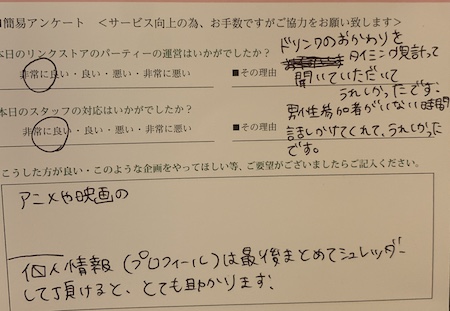 簡易アンケート <サービス向上の為、お手数ですがご協力をお願い致します>
本日のリンクストアのパーティーの運営はいかがでしたか?
非常に良い・良い・悪い・非常に悪い ■その理由
ドリンクのおかわりを
タイミング見計って
聞いていただいて
うれしかったです。
本日のスタッフの対応はいかがでしたか?
非常に良い・良い・悪い・非常に悪い ■その理由
男性参加者がいない時間
話しかけてくれて、うれしかった
です。
こうした方が良い・このような企画をやってほしい等、ご要望がございましたらご記入ください。
アニメや映画の
個人情報(プロフィール)は最後まとめてシュレッダー
して頂けると、とても助かります。